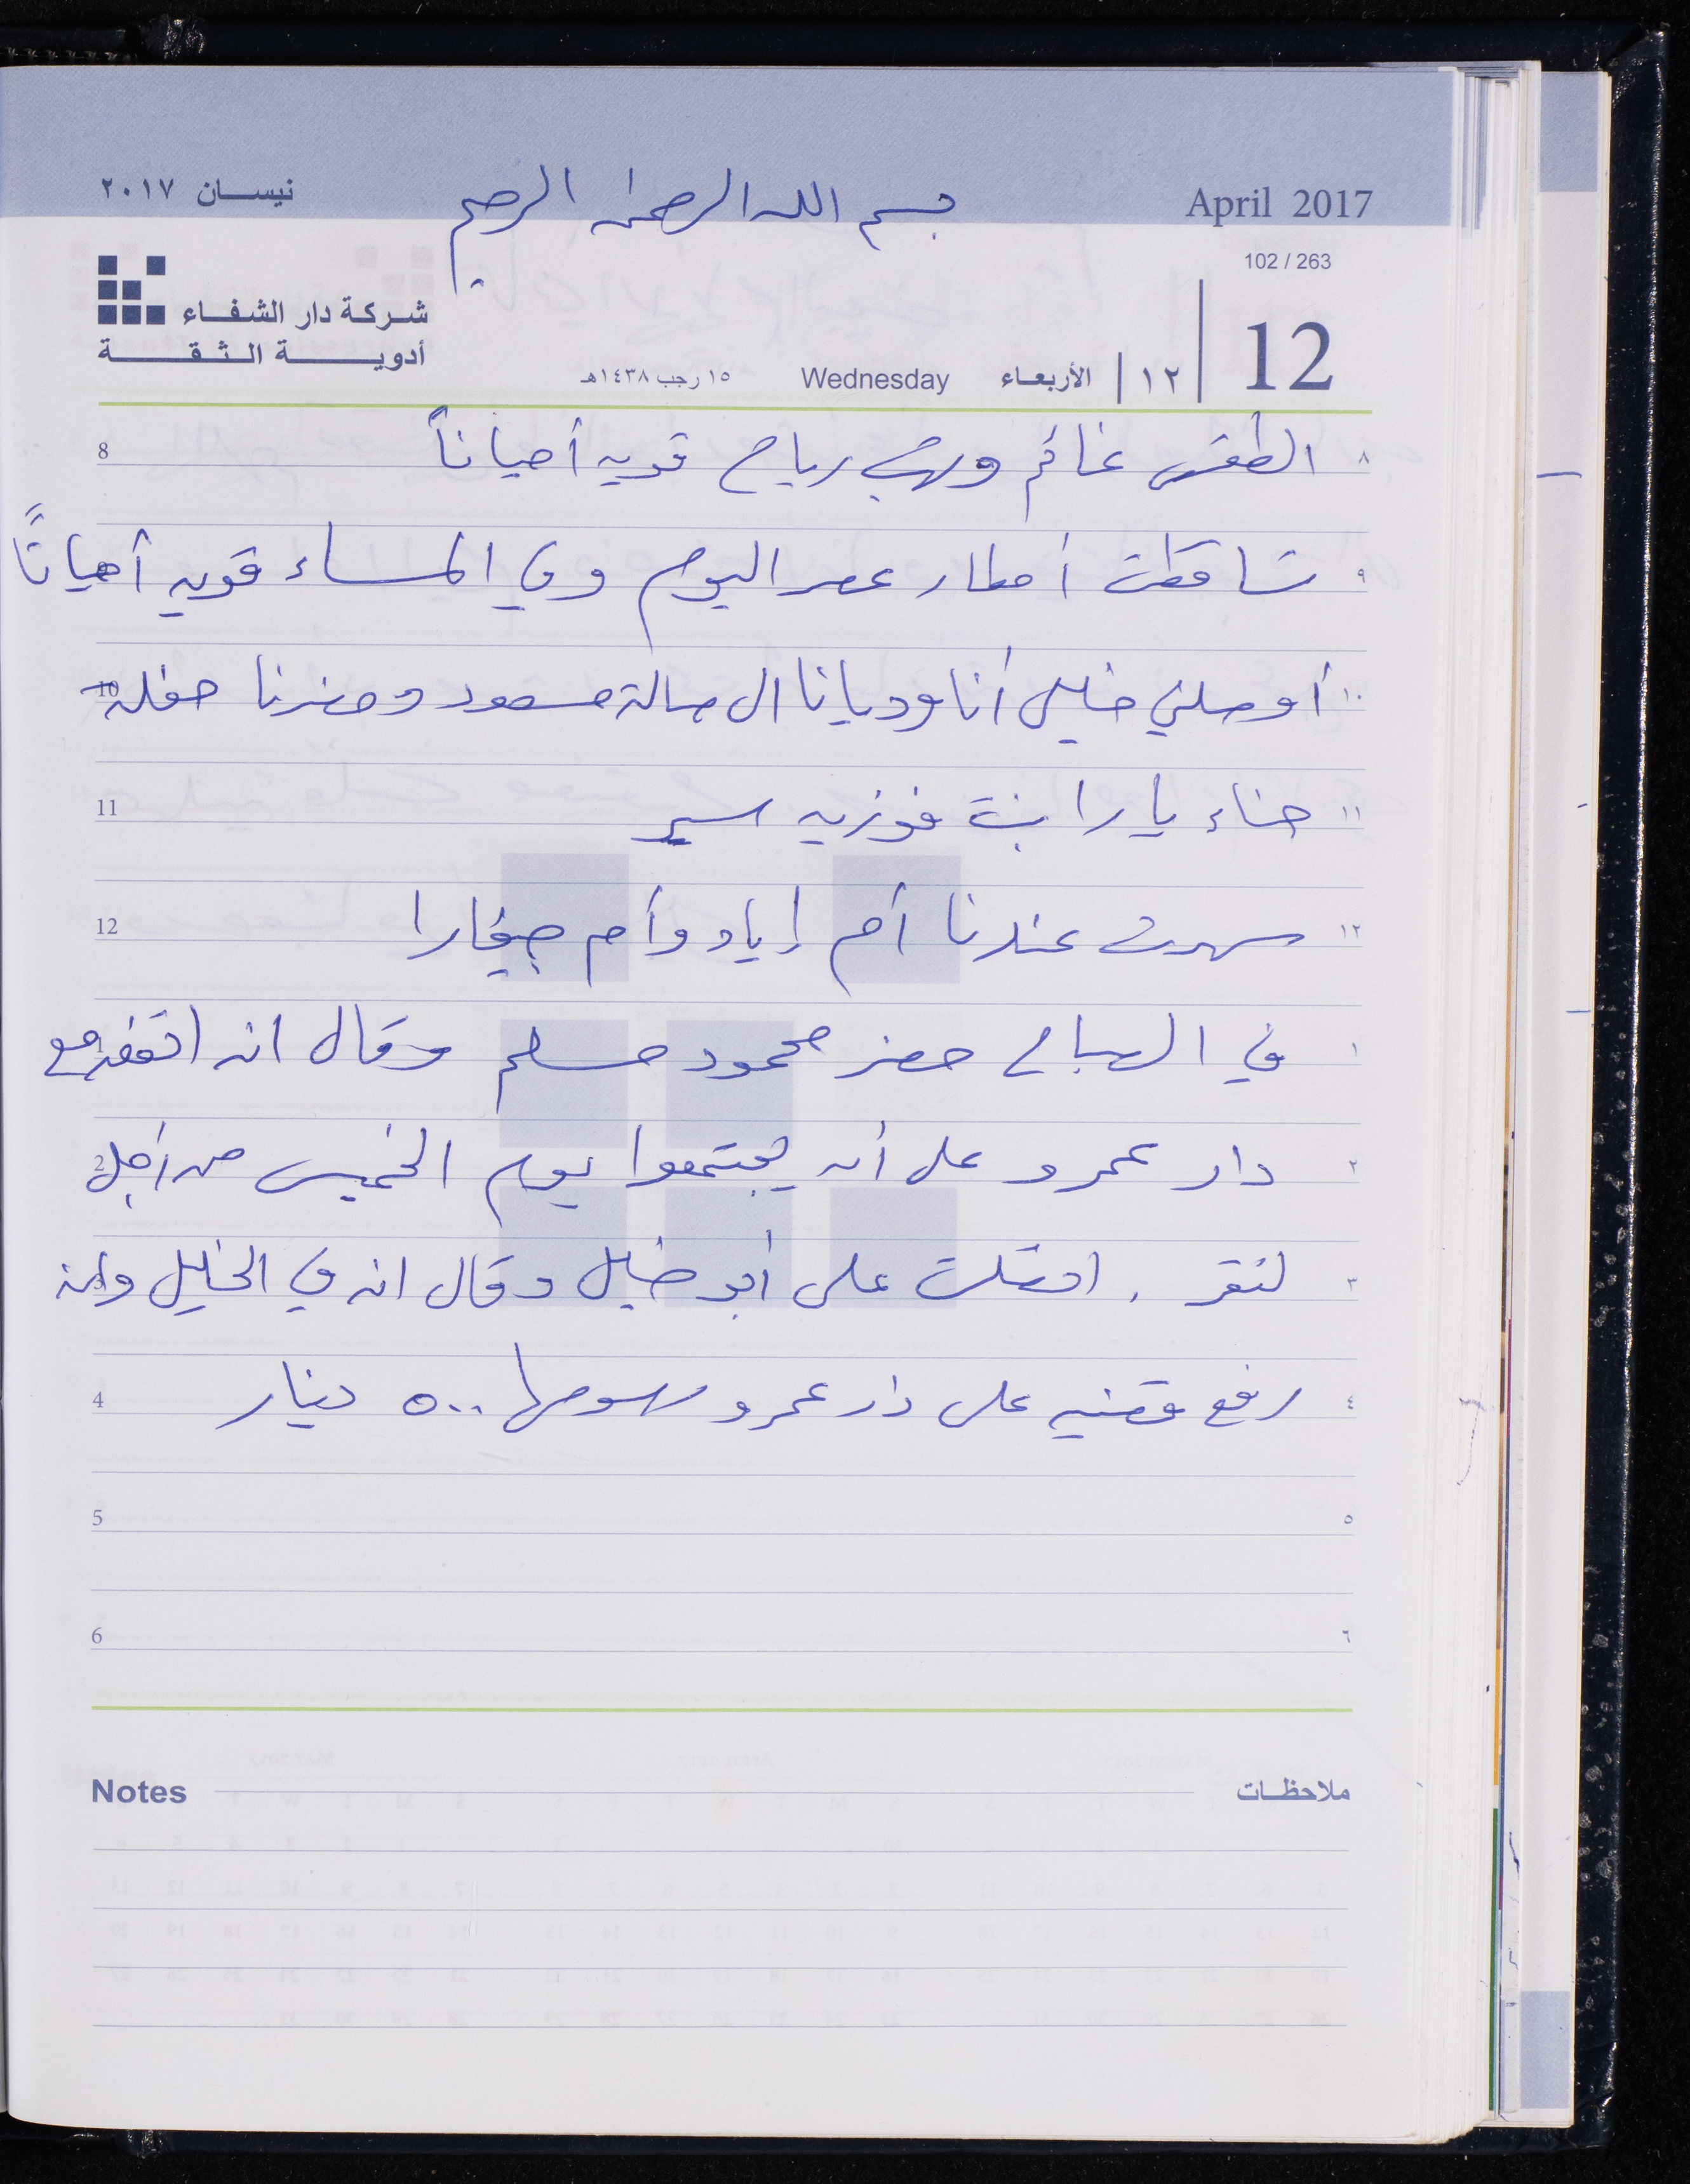 نيسان ٢٠١٧
بسم الله الرحمن الرحيم
April 2017
102 / 263
شركة دار الشفاء
أدوية الثقة
12 | ١٢ | الأربعاء Wednesday ١٥ رجب ١٤٣٨هـ
٨ الطقس غائم وتهب رياح قويه أحياناً 8
٩ تساقطت أمطار عصر اليوم وفي المساء قويه أحياناً
١٠ أوصلني خليل أنا وديانا الى صالة مسعود وحضرنا حفلة 10
١١ حناء يارا بنت فوزيه 11
١٢ سهرت عندنا أم إياد وأم جيفارا 12
١ في الصباح حضر محمود مسلم وقال انه اتفق مع 1
٢ دار عمرو على أن يجتمعوا يوم الخميس من أجل 2
٣ لنقر . اتصلت على أبو خليل وقال انه في الخليل وانه 3
٤ رفع قضيه على دار عمرو رسومها ٥٠٠ دينار 4
٥ 5
٦ 6
Notes ملاحظات